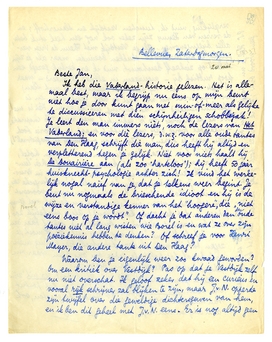 Bellevue, Zaterdagmorgen.
20 mei
Beste Jan,
Ik heb die Vaderland-historie gelezen. Het is alle-
maal best, maar ik begrijp nu eens op mijn beurt
niet hoe je door kunt gaan met min-of-meer als gelijke
te discussieeren met dien schijnheiligen schoolfrik!
Je leert den man immers niets, noch de lezers van Het
Vaderland; en voor die lezers, d.w.z. voor alle oude tantes
van Den Haag, schrijft die man, dien heeft hij altijd en
tegen je gelijk. Niet voor niets haalt hij
de Douairière aan (als zoo "raakloos"); hij heeft 50 jaar
huisknecht psychologie achter zich! Ik vind het werke-
lijk nogal naief van je, dat je telkens weer begint. Je
bent nu nogmaals de krijschende idioot en hij is de
wijze en verstandige kenner van het hoogere, die "niet
eens boos op je wordt". Of dacht je dat anderen dan oude
tantes niet al lang wisten wie Borel is en wat ze van zijn
hebben te denken? Of schreef je voor Henri
Mayer, die andere tante uit Den Haag?
Waarom ben je eigenlijk weer zoo kwaad geworden?
Om een kritiek op Vestdijk? Pas op dat je Vestdijk zelf
nu niet overschat. Ik geloof zeker dat hij een curieus en
vooral rijk schrijver zal blijken te zijn, maar J.v.N. opperde
zijn twijfel over die geweldige dichtergaven van hem,
en ik ben dit geheel met J.v.N. eens. Er is nog altijd geen